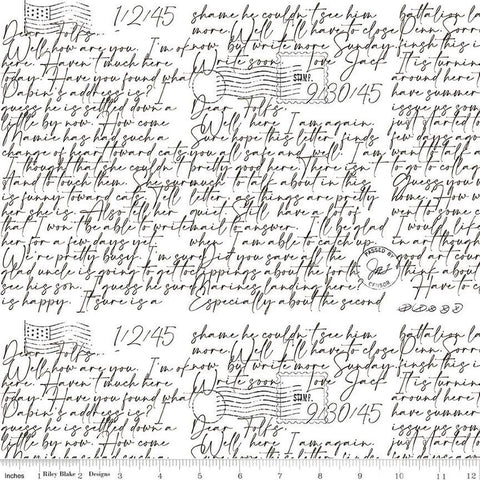 1/2/45
Dear Folks
Well how are you. I'm of
here. Haven't much here
today. Have you found what
Papin's address is? I
guess he is settled down a
little by now. How come
Mamie has had such a
change of heart toward cats
I thought that she couldn't
stand to touch them. She sur
is funny toward cats. Tell
her she is. Also tell her
that I won't be able to write
her for a few days yet.
We're pretty busy. I'm sur
glad uncle is going to get to
see his son. I guess he sur
is happy. It sure is a
shame he couldn't see him
more. Well I'll have to close
now but write more Sunday.
Write soon. Love Jack
STAMP.
9/30/45
Dear Folks.
Well here I am again.
Sure hope this letter finds
you all safe and well. I am
pretty good here. There isn't
much to talk about in this
letter, as things are pretty
quiet. Still have a lot of
mail to answer. I'll be glad
when I am able to catch up.
Did you save all the
clippings about the forth
Marines landing here?
Especially about the second
battalion la
Penn. Sorr
finish this i
It is turnin
around here t
have summer
issue us som
just started to
few days ago
want
to go to colla
Guess you w
home. How w
went to some c
I would lif
in art though
good art cour
think about
Have to c
PASSED BY
1/2/45
Dear Folks
Well how are you. I'm of
here. Haven't much here
today. Have you found what
Papin's address is? I
guess he is settled down a
little by now. How come
Mamie has had such a
shame he couldn't see him
more. Well I'll have to close
now but write more Sunday.
Write soon. Love Jack
STAMP.
9/30/45
Dear Folks.
Well here I am again.
Sure hope this letter finds
battalion la
Penn. Sorr
finish this i
It is turnin
around here t
have summer
issue us som
just started to
few days ago
inches 1 Riley Blake 2 Designs 3 4 5 6 7 8 9 10 11 12